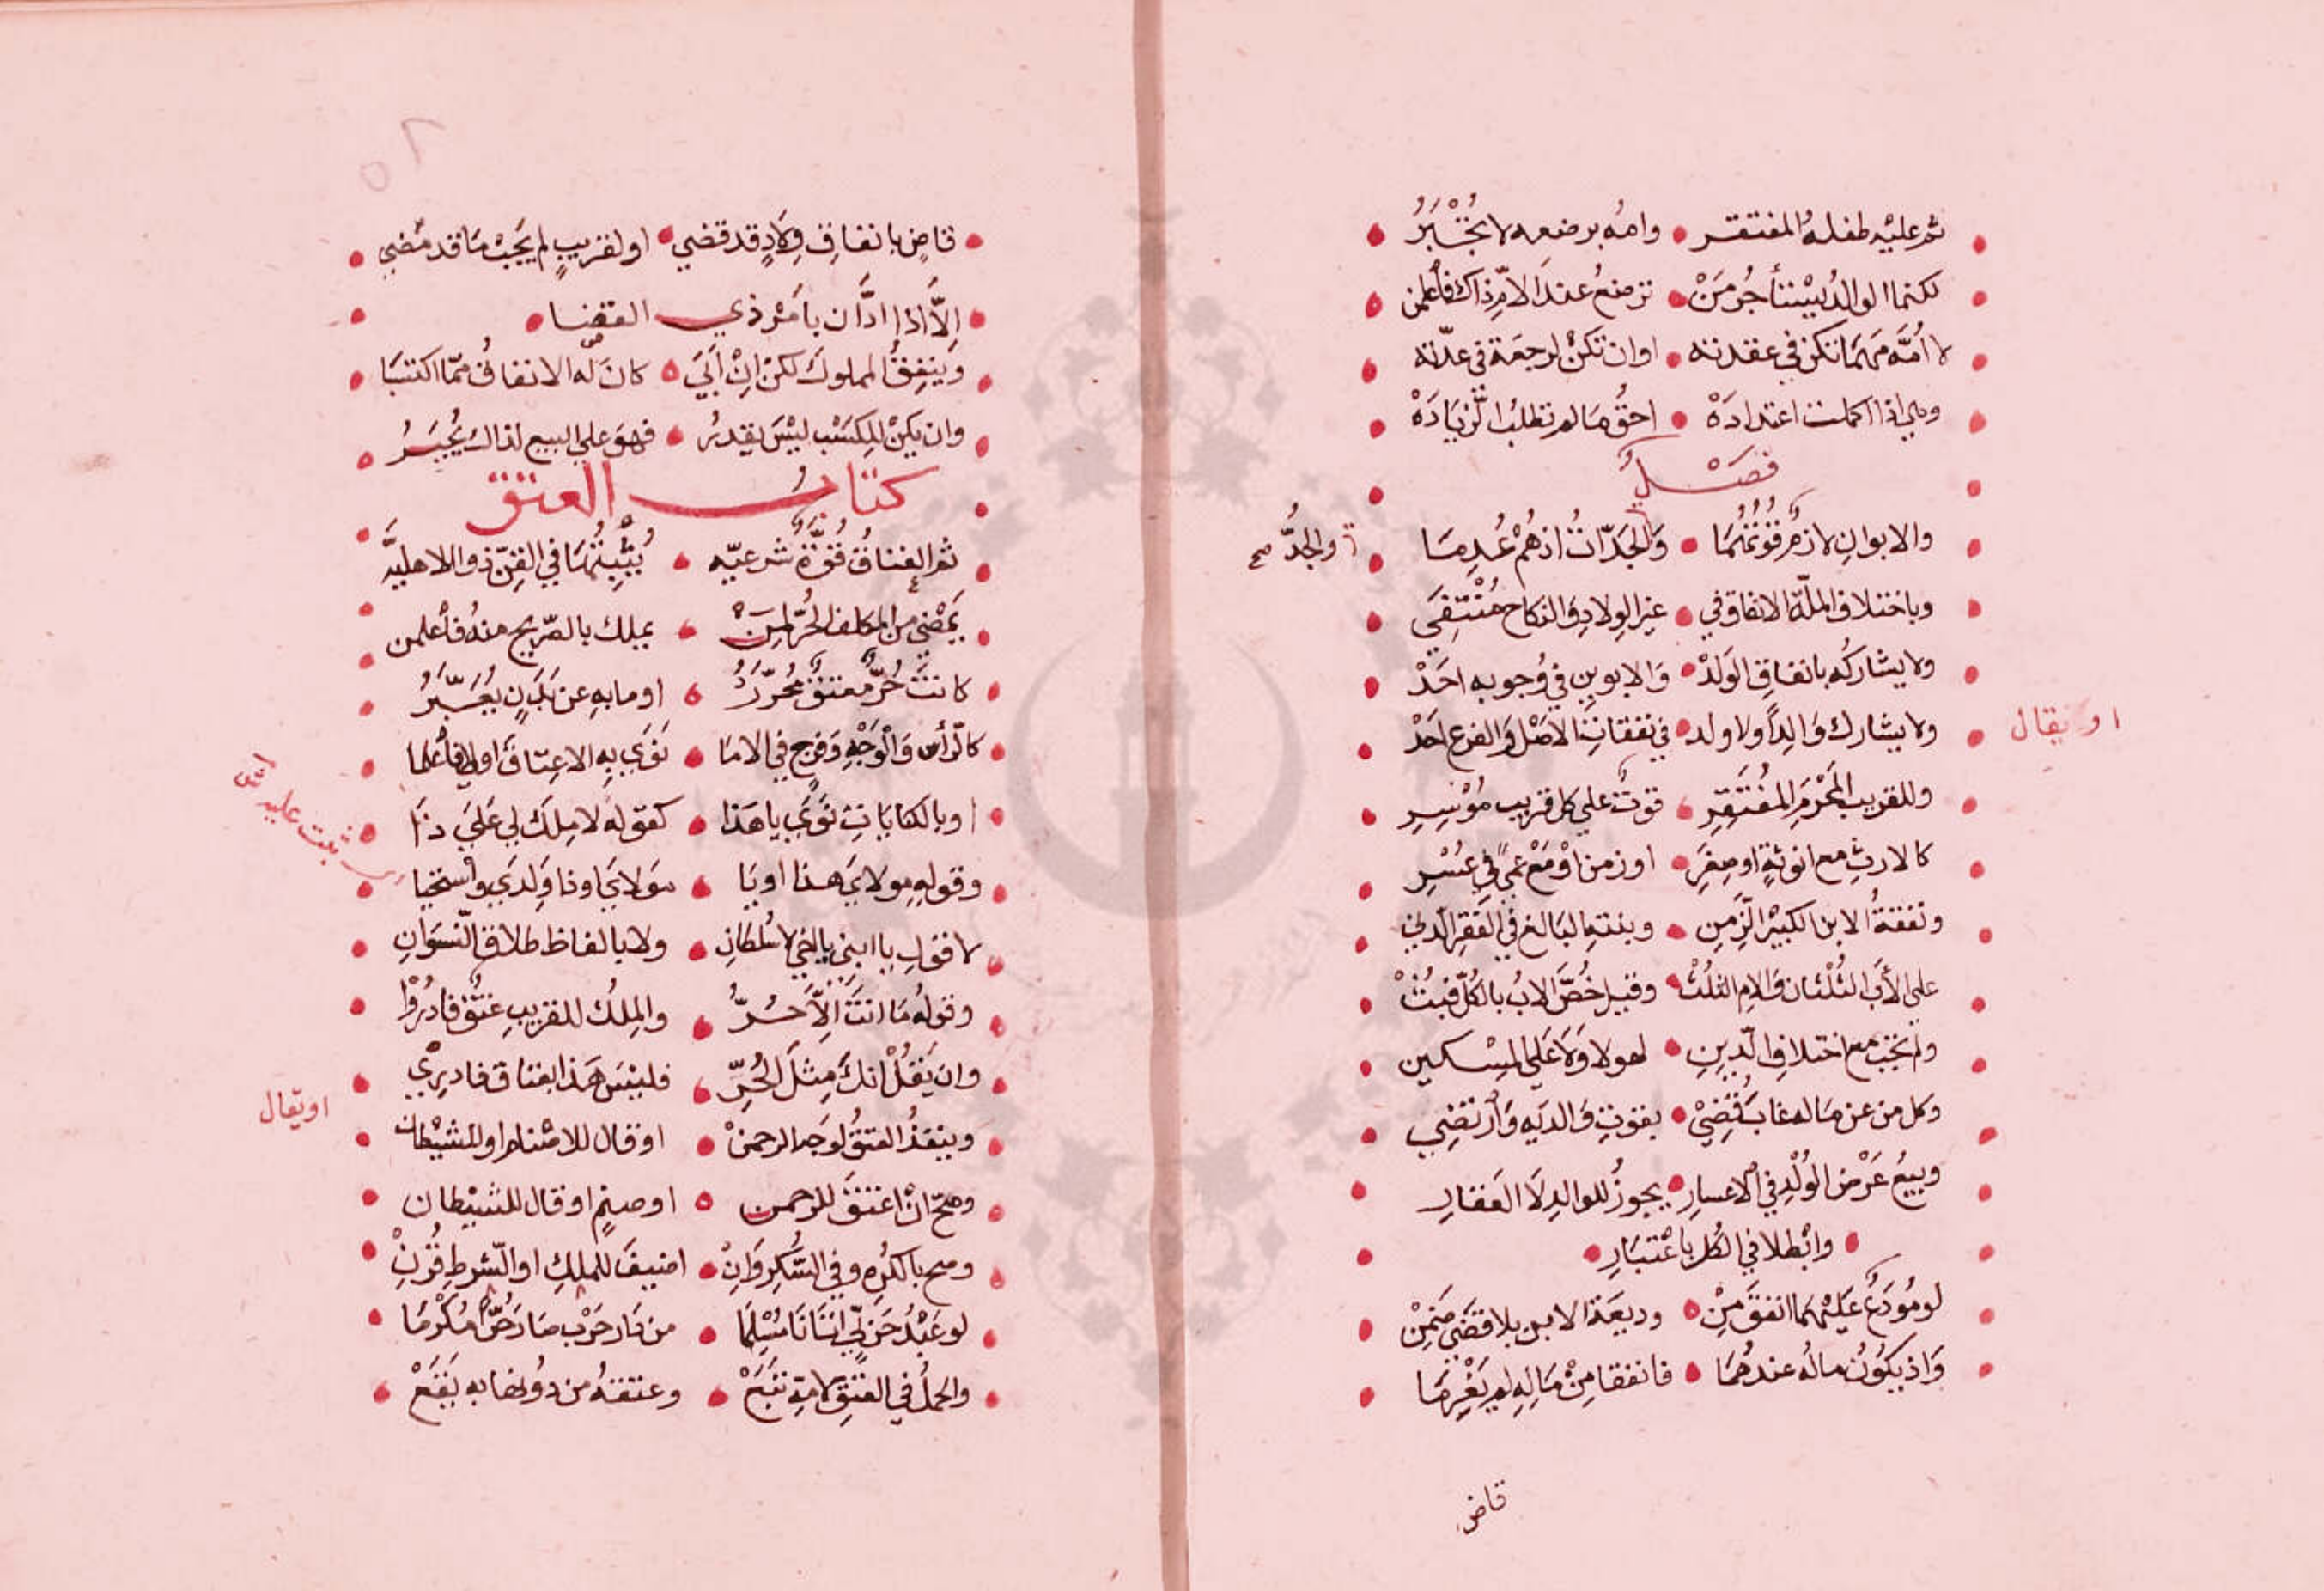 ثم عليه طفله المفتقر • وامه برضعه لا تجبر
لكنما الوالد يستأجر من • ترضع عند الام ذاك فاعلمن
لا امه مهما تكن في عقدته • او ان تكن لرجعة في عدته
وهي اذا اكملت اعتداده • احق ما لم تطلب الزياده
فصل
والابوان لازم قوتهما • والجدات اذ هم عدما
والجد صح
وباختلاف الملة الانفاق في • غير الولاد والنكاح منتفي
ولا يشاركه بانفاق الولد • والابوين في وجوبه احد
ولا يشارك والدا ولا ولد • في نفقات الاصل والفرع احد
او يقال
وللقريب المحرم المفتقر • قوت على كل قريب موسر
كالارث مع انوثة او صغر • او زمن او مع عمى في عسر
ونفقة الابن الكبير الزمن • وبنته البالغ في الفقر الدني
على الأب الثلثان والام الثلث • وقيل خص الاب بالكل فبث
ولم تجب مع اختلاف الدين • لهولا ولا على المسكين
وكل من عن ماله غاب قضي • بقوت والديه وارتضي
وبيع عرض الولد في الاعسار • يجوز للوالد لا العقار
• وابطلا في الكل باعتبار •
لو مودع عليهما انفق من • وديعة الابن بلا قضى ضمن
واذ يكون ماله عندهما • فانفقا من ماله لم يغرما
قاض
٥٢
قاض بانفاق ولاد قد قضي • او لقريب لم يجب ما قد مضي
الا اذا ادان بامر ذي القضا •
وينفق المملوك لكن ان ابي • كان له الانفاق مما اكتسبا
وان يكن للكسب ليس يقدر • فهو على البيع لذاك يجبر
كتاب العتق
ثم العتاق قوة شرعيه • يثبتها في القن ذو الاهليه
يمضي من المكلف الحر لمن • يملك بالصريح منه فاعلمن
كانت حر معتق محرر • او ما به عن بدن يعبر
كالرأس والوجه وفرج في الاما • نوى به الاعتاق او لا فاعلما
او بالكنايات نوى يا هذا • كقوله لا ملك لي على ذا
وقوله مولاي هذا او يا • مولاي او ذا ولدي واستحيا
ثبت عليه
لا قول يا ابني يا اخي لا سلطان • ولا بالفاظ طلاق النسوان
وقوله ما انت الا حر • والملك للقريب عتق فادروا
وان يقل انك مثل الحر • فليس هذا بعتاق فادري
وينفذ العتق لوجه الرحمن • او قال للاصنام او للشيطان
او يقال
وصح ان اعتق للرحمن • او صنم او قال للشيطان
وصح بالكره وفي السكر وان • اضيف للملك او الشرط قرن
لو عبد حربي اتانا مسلما • من دار حرب صار حرا مكرما
والحمل في العتق لامه تبع • وعتقه من دونها به يقع